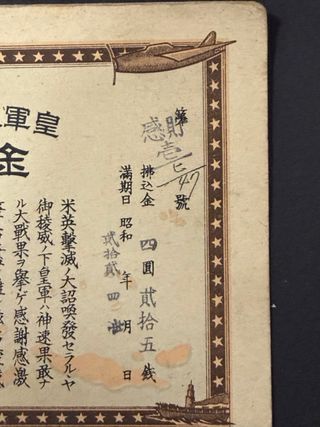 皇軍
金
第 號
拂込金 四圓貳拾五銭
満期日 昭和貳拾貳年四月 日
米英撃滅ノ大詔喚發セラルヽヤ
御稜威ノ下皇軍ハ神速果敢ナ
ル大戰果ヲ擧ゲ感謝感激